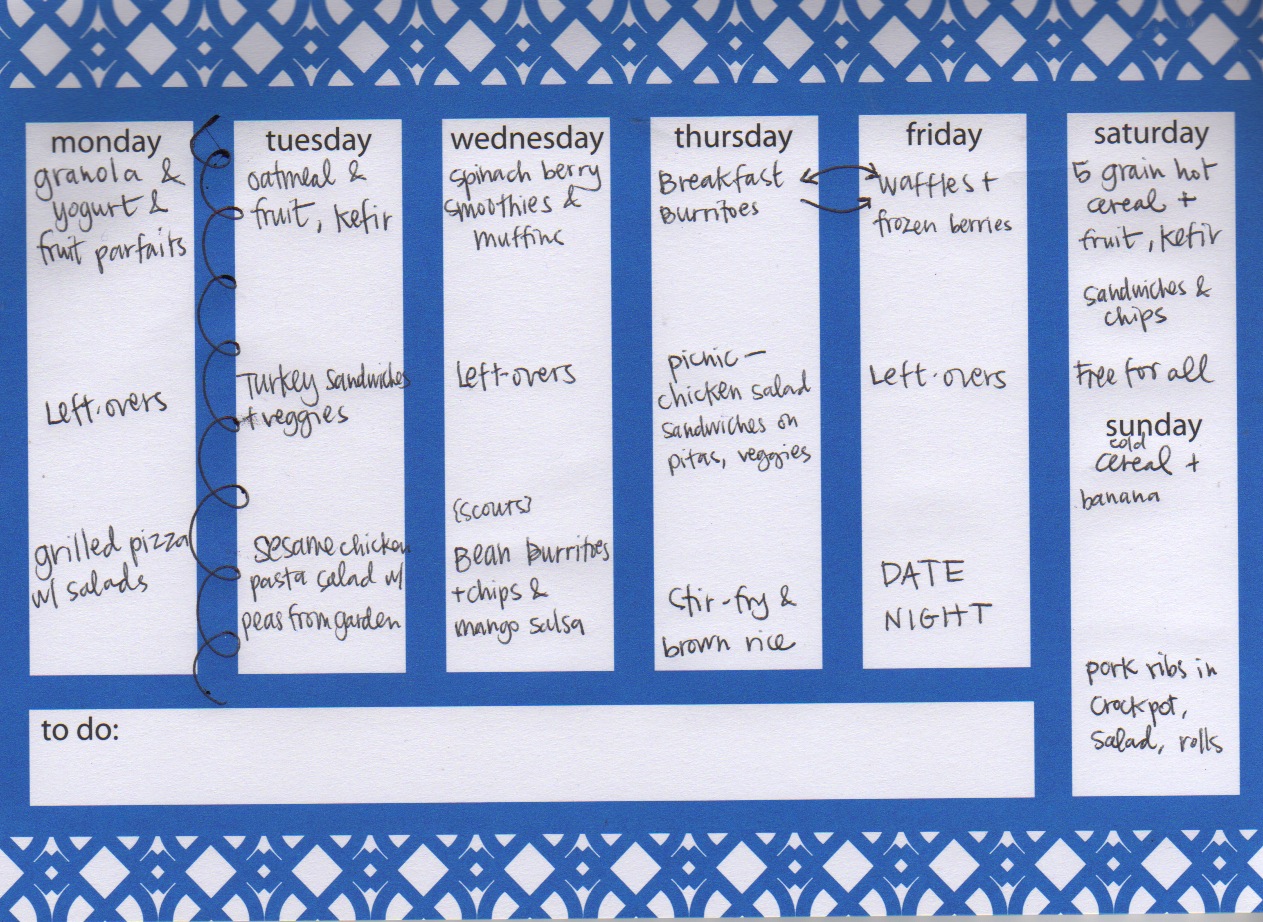 monday
granola &
yogurt &
fruit parfaits
Left-overs
grilled pizza
w/ salads
tuesday
oatmeal &
fruit, kefir
Turkey sandwiches
+ veggies
sesame chicken
pasta salad w/
peas from garden
wednesday
spinach berry
smoothies &
muffins
Left-overs
{scouts}
Bean burritoes
+ chips &
mango salsa
thursday
Breakfast
Burritoes
picnic —
chicken salad
sandwiches on
pitas, veggies
Stir-fry &
brown rice
friday
waffles +
frozen berries
Left-overs
DATE
NIGHT
saturday
5 grain hot
cereal +
fruit, kefir
sandwiches &
chips
Free for all
sunday
cold
cereal +
banana
pork ribs in
crockpot,
salad, rolls
to do: